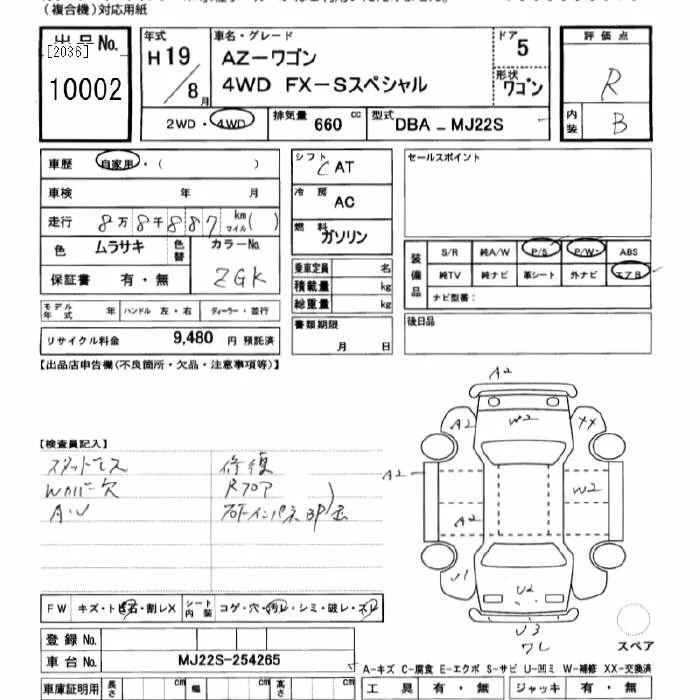 (複合機)対応用紙
出品No. [2036]
10002
年式
H19/8月
車名・グレード
AZーワゴン
4WD FX-Sスペシャル
ドア 5
形状 ワゴン
2WD・4WD
排気量 660 cc
型式 DBA _ MJ22S
評価点
R
内装 B
車歴 自家用・( )
車検 年 月
走行 8万8千887 km マイル( )
色 ムラサキ 色替
カラーNo. ZGK
保証書 有・無
モデル年式 年 ハンドル 左・右 ディーラー・並行
リサイクル料金 9,480 円 預託済
シフト CAT
冷房 AC
燃料 ガソリン
乗車定員 名
積載量 kg
総重量 kg
書類期限
月 日
セールスポイント
装備品
S/R 純A/W P/S P/W ABS
純TV 純ナビ 革シート 外ナビ エアB
ナビ型番:
後日品
【出品店申告欄(不良箇所・欠品・注意事項等)】
【検査員記入】
スタッドレス 修復
Wカバー欠 Rフロア
A・W
FW キズ・ト ビ石・割レX
シート内装 コゲ・穴・汚レ・シミ・破レ・スレ
登録No.
車台No. MJ22S-254265
車庫証明用 長さ cm 幅 cm 高さ cm
A2
A2
W2
XX
A2
W2
A2
U1
U2
U3
ワレ
スペア
A-キズ C-腐食 E-エクボ S-サビ U-凹ミ W-補修 XX-交換済
工具 有・無 ジャッキ 有・無